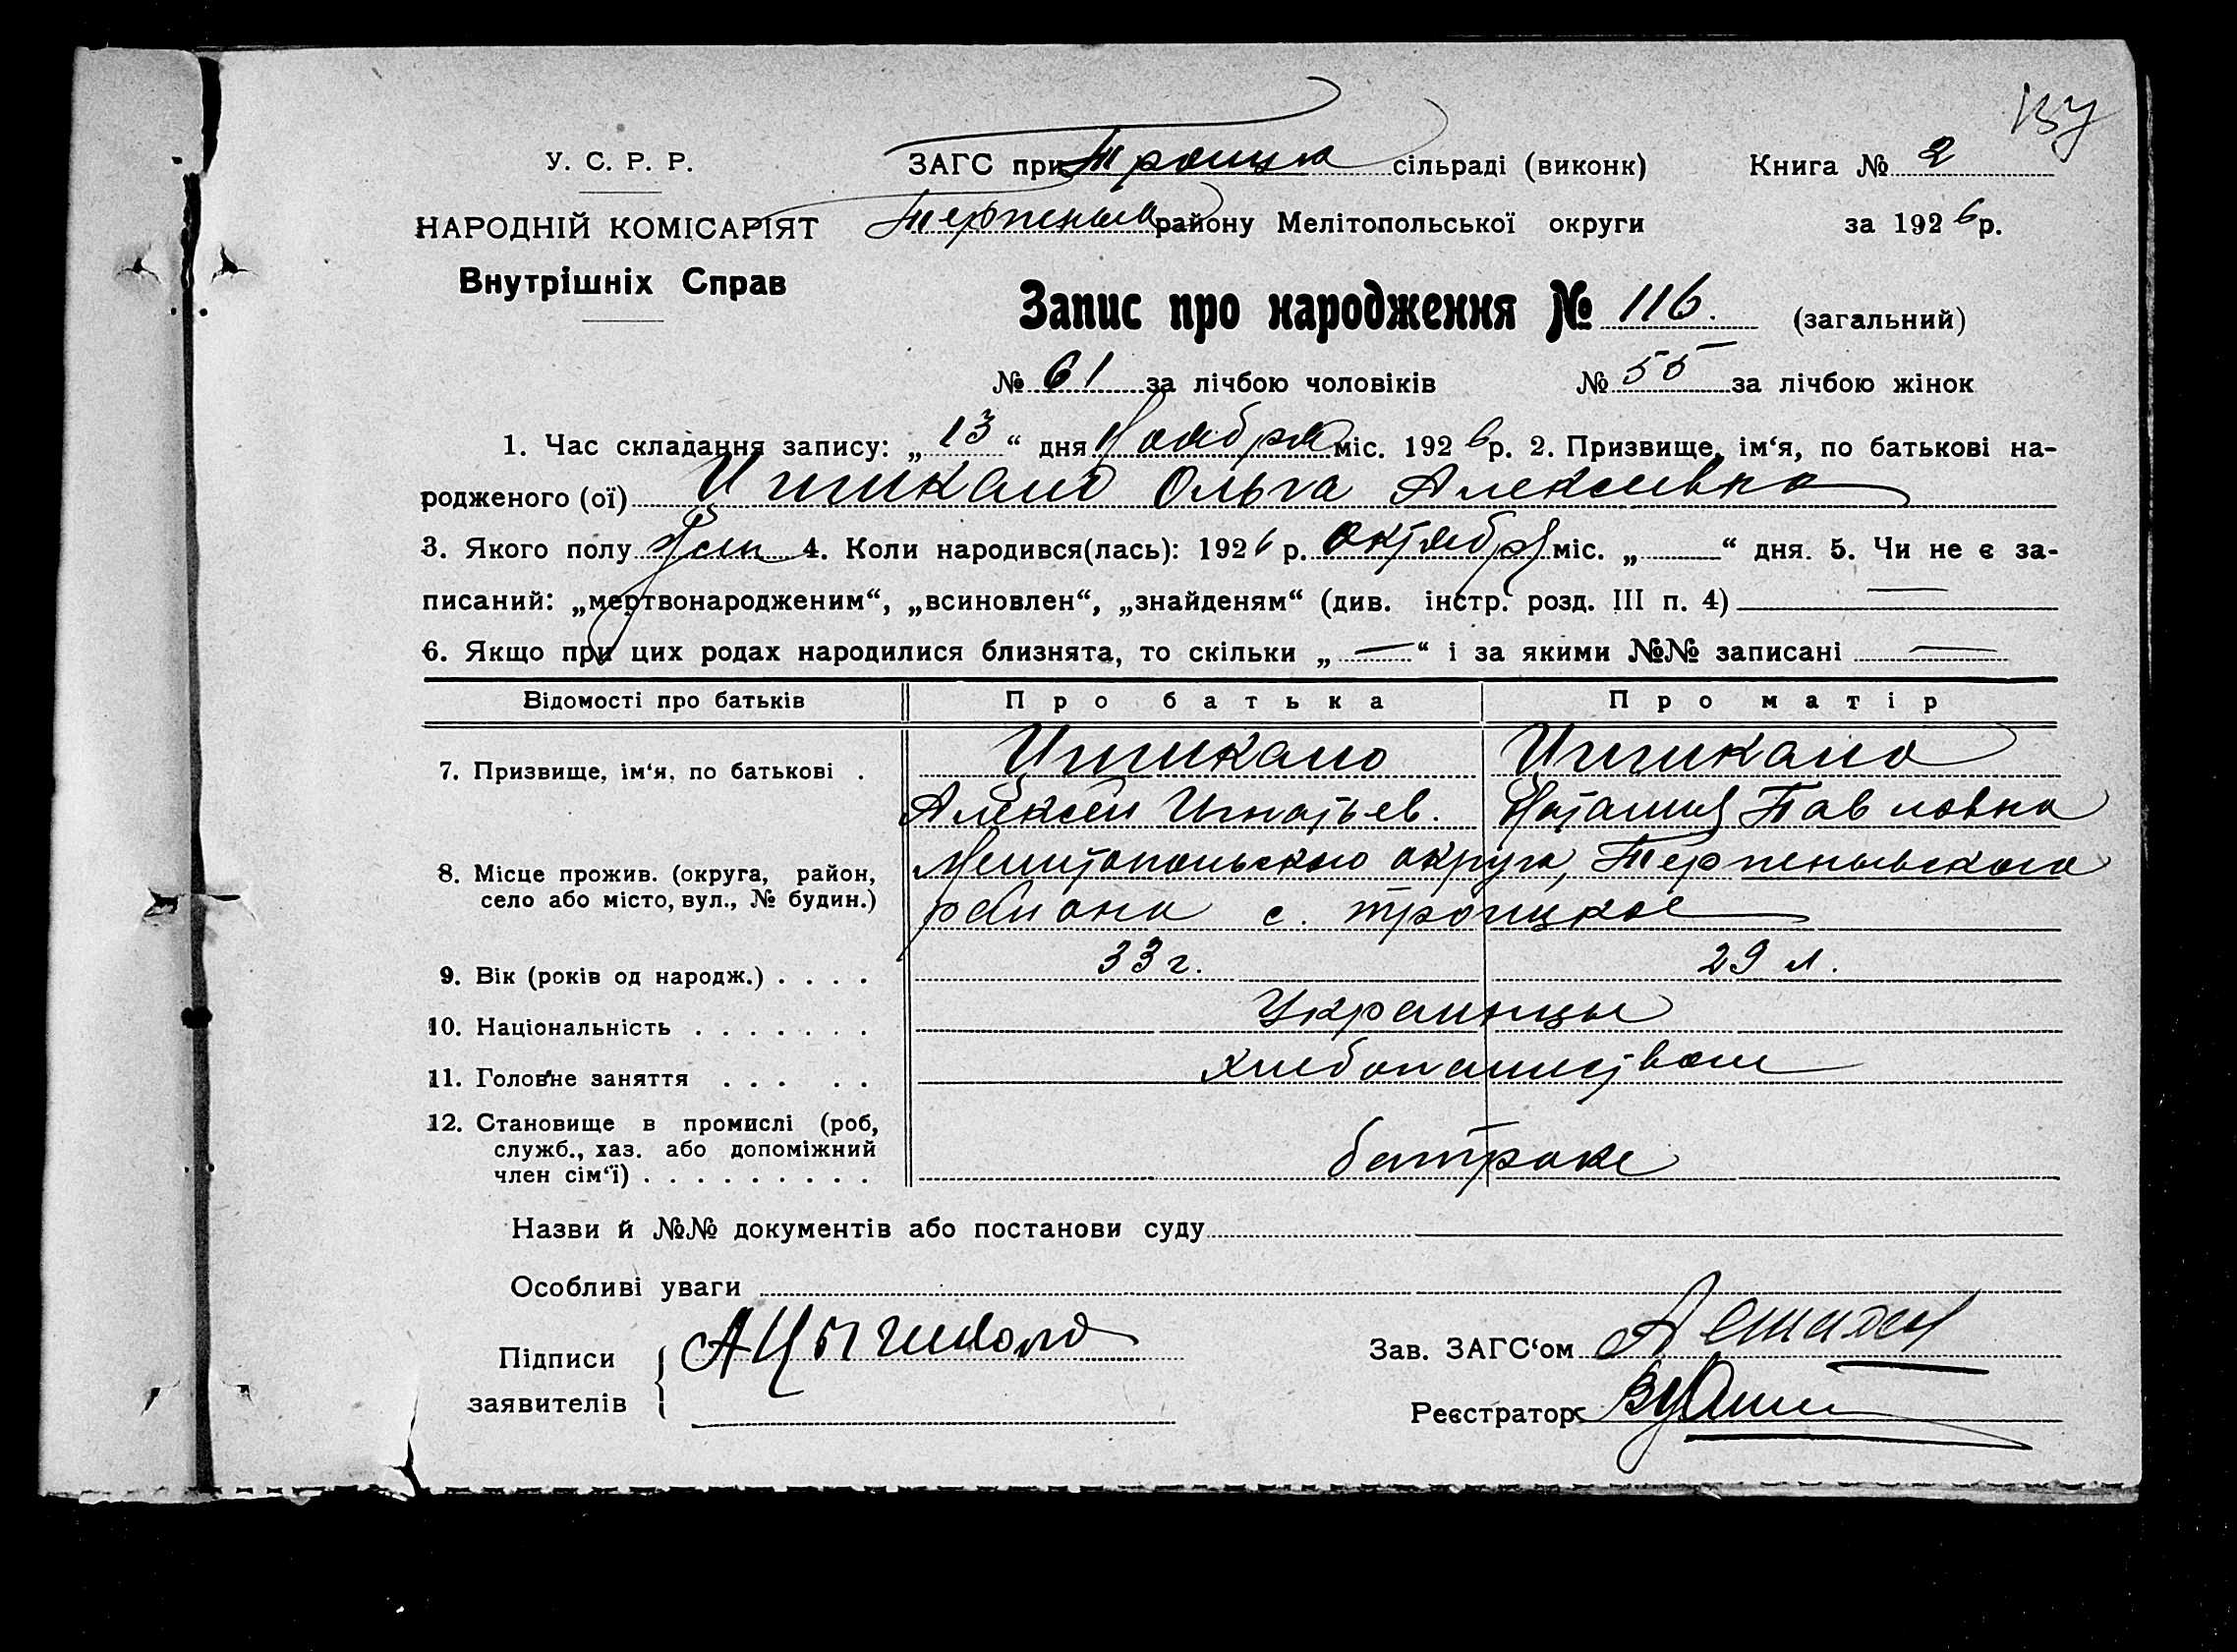 137
У. С. Р. Р.
ЗАГС при Троицк сільраді (виконк)
Книга № 2
НАРОДНІЙ КОМІСАРІЯТ
Терпеньев району Мелітопольської округи
за 1926 р.
Внутрішніх Справ
Запис про народження № 116. (загальний)
№ 61 за лічбою чоловіків № 55 за лічбою жінок
1. Час складання запису: „13“ дня Ноября міс. 1926 р. 2. Призвище, ім‘я, по батькові на-
родженого (ої) Ольга Алексеевна
3. Якого полу жен 4. Коли народився(лась): 1926 р. октября міс. „ “ дня. 5. Чи не є за-
писаний: „мертвонародженим“, „всиновлен“, „знайденям“ (див. інстр. розд. III п. 4) —
6. Якщо при цих родах народилися близнята, то скільки „—“ і за якими №№ записані —
Відомості про батьків
Про батька
Про матір
7. Призвище, ім‘я, по батькові .
Алексей Игнатьев.
Наталия Павловна
8. Місце прожив. (округа, район,
село або місто, вул., № будин.)
Мелитопольского округа, Терпеньевского
района с. Троицкое
9. Вік (років од народж.) . . . .
33 г.
29 л.
10. Національність . . . . . . .
Украинцы
11. Головне заняття . . . . .
хлебопашеством
12. Становище в промислі (роб,
служб., хаз. або допоміжний
член сім‘ї) . . . . . . . . .
батраке
Назви й №№ документів або постанови суду
Особливі уваги
Підписи
заявителів
А
Зав. ЗАГС‘ом
Реєстратор